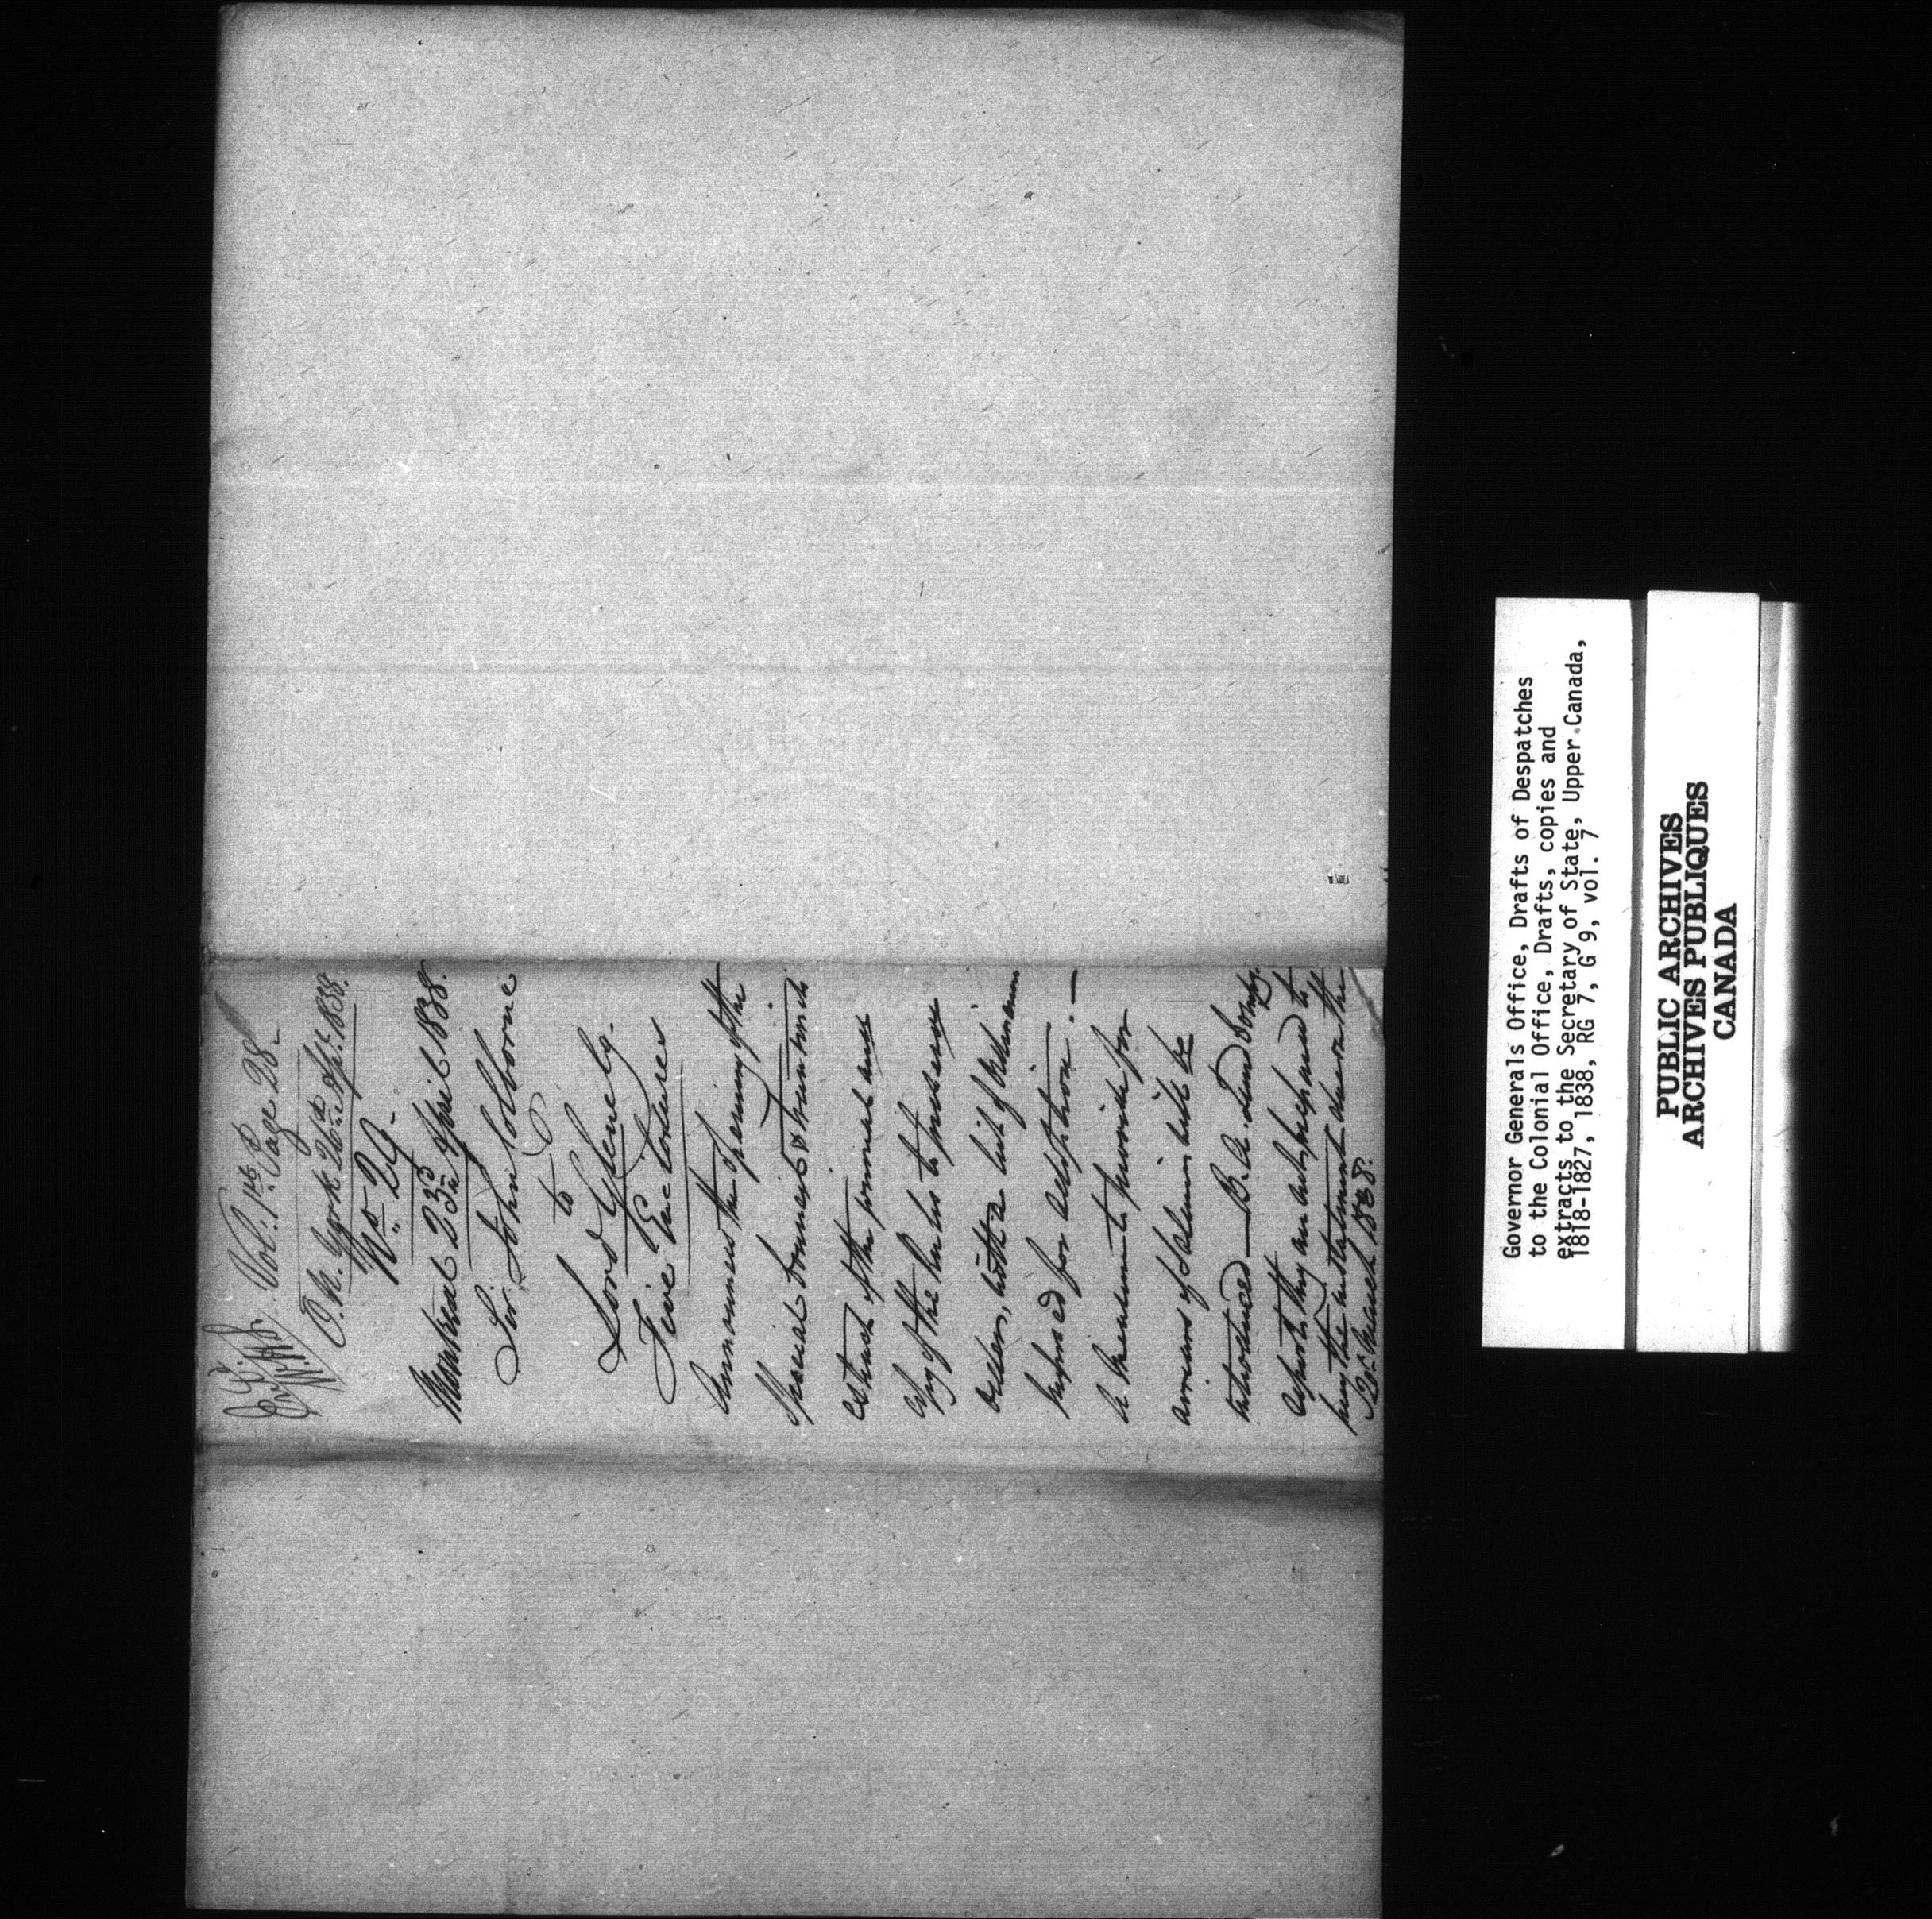 Vol: 1st Page 28.
N. York 26th Apl. 1838.
No 29.
Montreal 23rd April 1838.
Sir John Colborne
to
Lord Glenelg.
Five Enclosures
Announces the opening of the
Special Council & transmits
extract of the journal and
copy of the rules to preserve
order, with a list of Ordinances
proposed for adoption.—
A measure to provide for
arrears of Salaries will be
introduced—B. A. Land Compy.
deposits they are only prepared to
pay the instalment due on the
20th March 1838.
Governor Generals Office, Drafts of Despatches
to the Colonial Office, Drafts, copies and
extracts to the Secretary of State, Upper Canada,
1818-1827, 1838, RG 7, G 9, vol. 7
PUBLIC ARCHIVES
ARCHIVES PUBLIQUES
CANADA